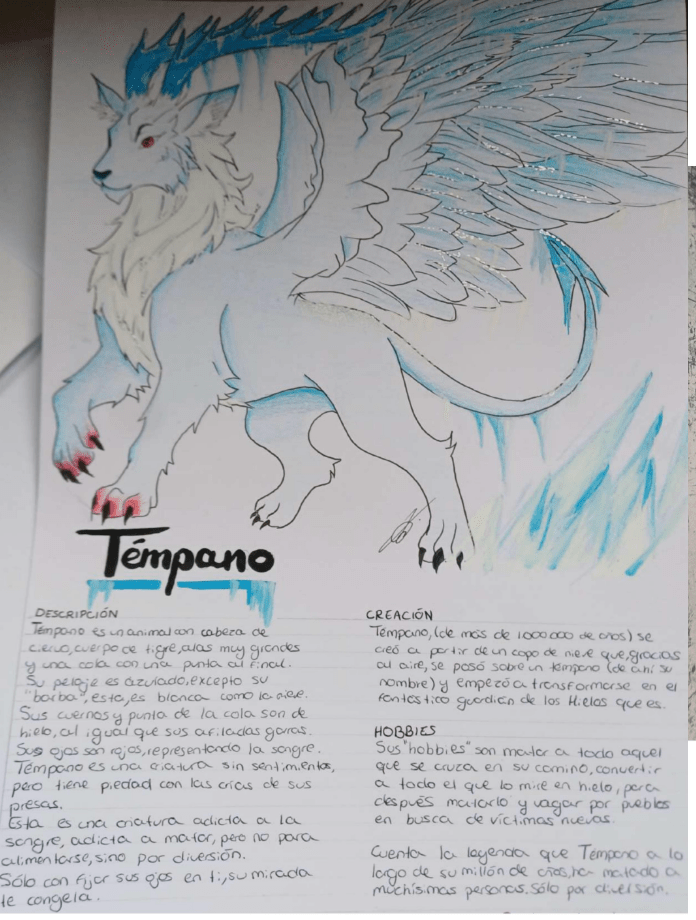 Témpano
DESCRIPCIÓN
Témpano es un animal con cabeza de
ciervo, cuerpo de tigre, alas muy grandes
y una cola con una punta al final.
Su pelaje es azulado, excepto su
"barba", esta, es blanca como la nieve.
Sus cuernos y punta de la cola son de
hielo, al igual que sus afiladas garras.
Sus ojos son rojos, representando la sangre.
Témpano es una criatura sin sentimientos,
pero tiene piedad con las crías de sus
presas.
Esta es una criatura adicta a la
sangre, adicta a matar, pero no para
alimentarse, sino por diversión.
Sólo con fijar sus ojos en ti, su mirada
te congela.
CREACIÓN
Témpano, (de más de 1000000 de años) se
creó a partir de un copo de nieve que, gracias
al aire, se posó sobre un témpano (de ahí su
nombre) y empezó a transformarse en el
fantástico guardián de los Hielos que es.
HOBBIES
Sus "hobbies" son matar a todo aquel
que se cruza en su camino, convertir
a todo el que lo mire en hielo, para
después matarlo y vagar por pueblos
en busca de víctimas nuevas.
Cuenta la leyenda que Témpano a lo
largo de su millón de años, ha matado a
muchísimas personas. Sólo por diversión.